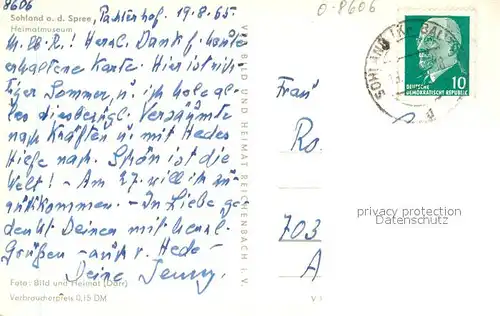 8606
O-8606
Sohland a. d. Spree, Pachterhof. 19.8.65.
Heimatmuseum
M. lb. R.! Herzl. Dank f. heute
erhaltene Karte. Hier ist rich-
tiger Sommer, u. ich hole al-
les diesbezügl. Versäumte
nach Kräften u. mit Hedes
Hilfe nach. Schön ist die
Welt! - Am 27. will ich zu-
rückkommen. - In Liebe ge-
denkt Deiner mit herzl.
Grüßen - auch v. Hede -
Deine Jenny.
Foto: Bild und Heimat (Darr)
Verbraucherpreis 0,15 DM
VEB BILD UND HEIMAT REICHENBACH i. V.
V
SOHLAND (KR. BAU
10
DEUTSCHE
DEMOKRATISCHE REPUBLIK
Frau
Ro.
703
A
privacy protection
Datenschutz